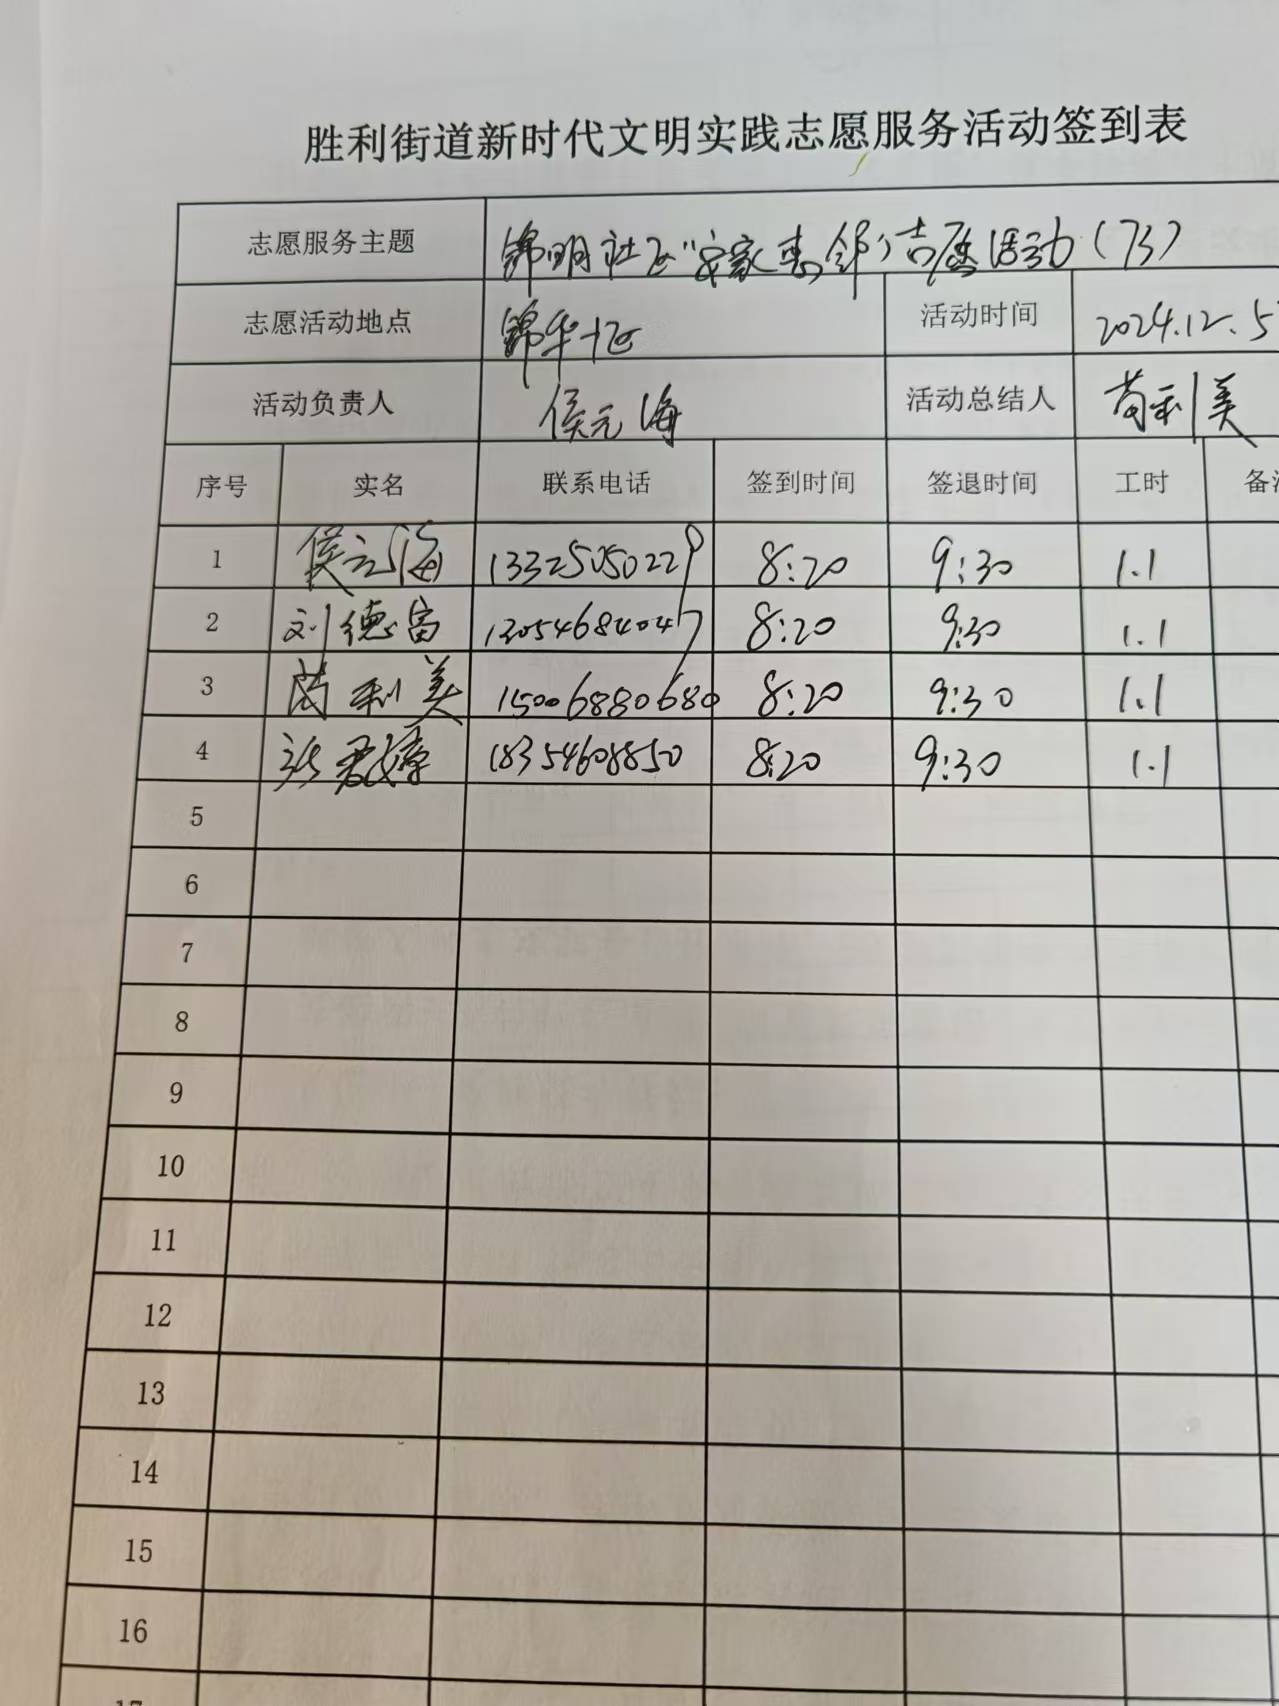 胜利街道新时代文明实践志愿服务活动签到表
志愿服务主题 锦明社区“安家惠邻”志愿活动(73)
志愿活动地点 锦华一区 活动时间 2024.12.5
活动负责人 侯元海 活动总结人 苘利美
序号 实名 联系电话 签到时间 签退时间 工时 备注
1 侯元海 13325050229 8:20 9:30 1.1
2 刘德富 13054684047 8:20 9:30 1.1
3 苘利美 15006880680 8:20 9:30 1.1
4 张君婷 18354608850 8:20 9:30 1.1
5
6
7
8
9
10
11
12
13
14
15
16
17